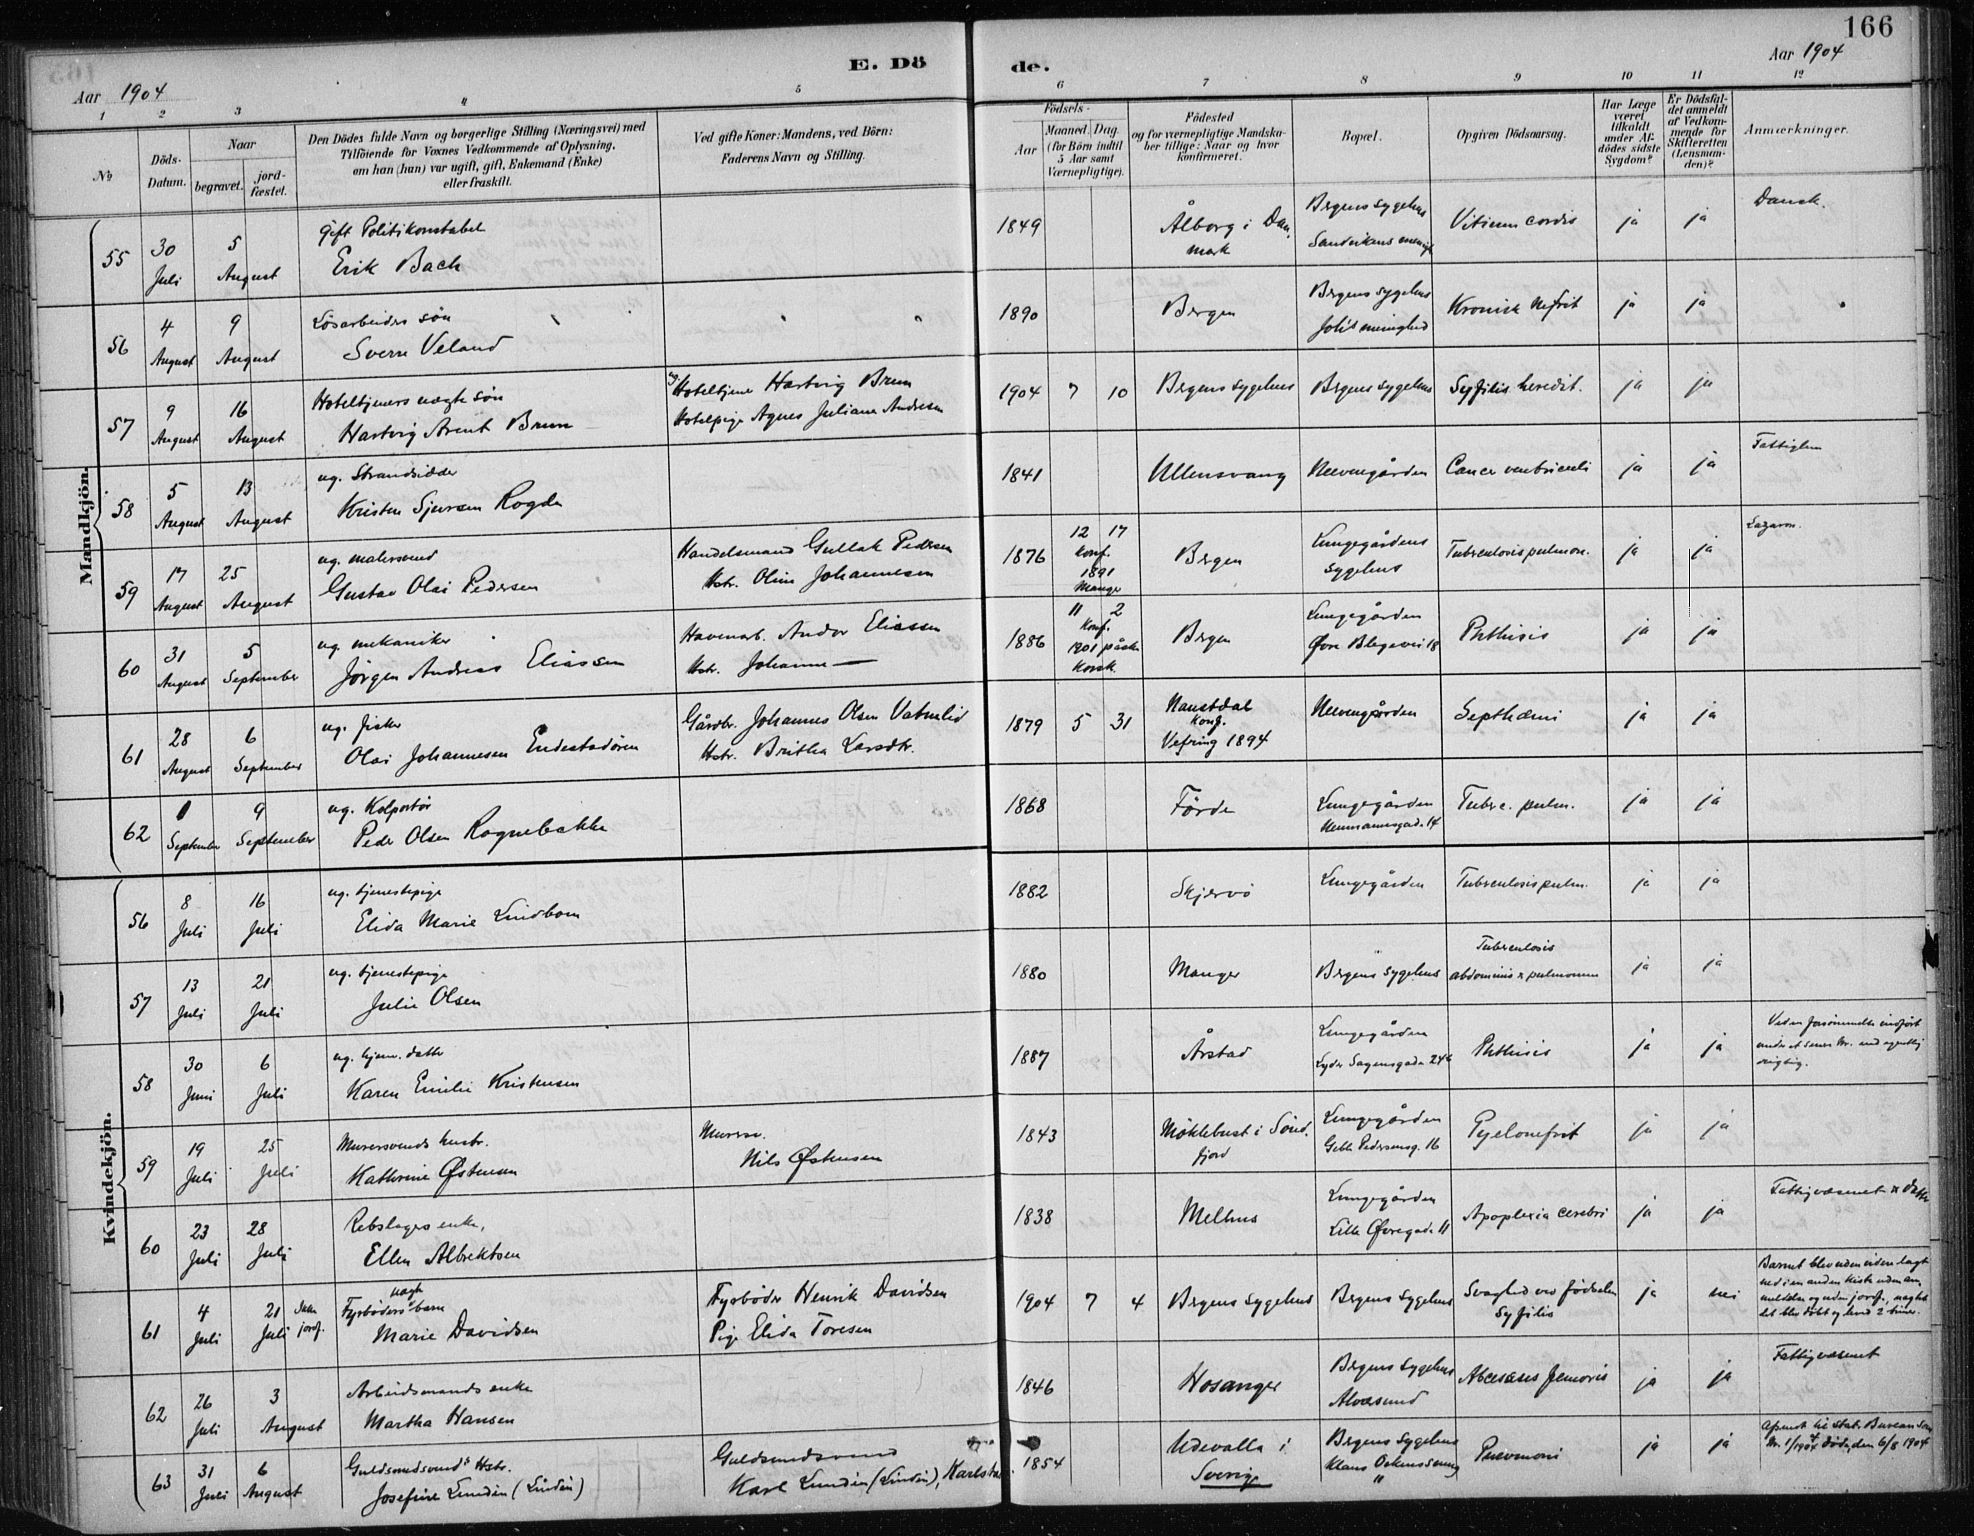 166
E. Döde.
Aar 1904
Aar 1904
1 2 3 4 5 6 7 8 9 10 11 12
№
Döds-Datum.
Naar
begravet.
jord-fæstet.
Den Dödes fulde Navn og borgerlige Stilling (Næringsvei) med
Tilföiende for Voxnes Vedkommende af Oplysning,
om han (hun) var ugift, gift, Enkemand (Enke)
eller fraskilt.
Ved gifte Koner: Mandens, ved Börn:
Faderens Navn og Stilling.
Födsels-
Aar
Maaned. Dag.
(for Börn indtil
5 Aar samt
Værnepligtige).
Födested
og for værnepligtige Mandska-
ber tillige: Naar og hvor
konfirmeret.
Bopæl.
Opgiven Dödsaarsag.
Har Læge
været
tilkaldt
under Af-
dödes sidste
Sygdom?
Er Dödsfal-
det anmeldt
af Vedkom-
mende for
Skifteretten
(Lensman-
den)?
Anmærkninger.
Mandkjön.
55 30 Juli 5 August
gift Politikonstabel
Erik Bach
1849 Ålborg i Danmark
Bergens sygehus
Sandvikens menigh
Vitium cordis ja ja Dansk.
56 4 August 9 August
Løsarbeiders søn
Sverre Veland
1890 Bergen
Bergens sygehus
Joh's menighed
Kronisk nefrit ja ja
57 9 August 16 August
Hoteltjeners uægte søn
Hartvig Arent Brun
Hoteltjener Hartvig Brun
Hotelpige Agnes Juliane Andresen
1904 7 10 Bergens sygehus Bergens sygehus Syfilis heredit. ja ja
58 5 August 13 August
ug. Strandsidder
Kristen Sjursen Rogde
1841 Ullensvang Neevengården Cancer ventriculi ja ja Fattiglem
59 17 August 25 August
ug. malersvend
Gustav Olai Pedersen
Handelsmand Gullak Pedersen
Hstr. Oline Johannesen
1876 12 17
Konf.
1891
Manger
Bergen
Lungegårdens
sygehus
Tuberculosis pulmon. ja ja Lazaron.
60 31 August 5 September
ug. mekaniker
Jörgen Andreas Eliassen
Havnearb. Andor Eliassen
Hstr. Johanne —
1886 11 2
Konf.
1901 påske
Korsk.
Bergen
Lungegården
Øvre Blegevei 18
Phthisis ja ja
61 28 August 6 September
ug. fisker
Olai Johannesen Endestadören
Gårdbr. Johannes Olsen Vatnelid
Hstr. Britha Larsdtr.
1879 5 31
Naustdal
Konf.
Vefring 1894
Neevengården Septhæmi ja ja
62 1 September 9 September
ug. Kolportör
Peder Olsen Rognebakke
1868 Förde
Lungegården
Neumannsgade 14
Tuberc. pulm. ja ja
Kvindekjön.
56 8 Juli 16 Juli
ug. tjenestepige
Elida Marie Lindbom
1882 Skjervö Lungegården Tuberculosis pulm. ja ja
57 13 Juli 21 Juli
ug. tjenestepige
Julie Olsen
1880 Manger Bergens sygehus
Tuberculosis
abdominis & pulmonum
ja ja
58 30 Juni 6 Juli
ug. hjem. datter
Karen Emilie Kristensen
1887 Årstad
Lungegården
Lyder Sagensgade 24b
Phthisis ja ja
Ved en forsömmelse indført
under et senere Nr. end egentlig
rigtig.
59 19 Juli 25 Juli
Murersvends hustr.
Kathrine Østensen
Murersv.
Nils Østensen
1843
Möklebust i Sönd.
fjord
Lungegården
Geble Pedersensg. 16
Pyelonefrit ja ja
60 23 Juli 28 Juli
Rebslagers enke,
Ellen Albrektsen
1838 Melhus
Lungegården
Lille Øvregade 11
Apoplexia cerebri ja ja
Fattigvæsenet & datter
61 4 Juli 21 Juli Ikke jordf.
Fyrböders uægte barn
Marie Davidsen
Fyrböder Henrik Davidsen
Pige Elida Toresen
1904 7 4 Bergens sygehus Bergens sygehus
Svaghed ved fødselen
Syfilis
ja nei
Barnet blev uden viden lagt
ned i en anden kiste uden an-
meldelse og uden jordf., uagtet
det blev døbt og levede 2 timer.
62 26 Juli 3 August
Arbeidsmands enke
Martha Hansen
1846 Hosanger
Bergens sygehus
Alversund
Abcessus femoris ja ja Fattigvæsenet
63 31 Juli 6 August
Guldsmedsvends Hstr.
Josefine Lundin (Lindén)
Guldsmedsvend
Karl Lundin (Lindén), Karlstad.
1854
Udevalla i
Sverige
Bergens sygehus
Klaus Ockenssmug
11
Pneumoni ja ja